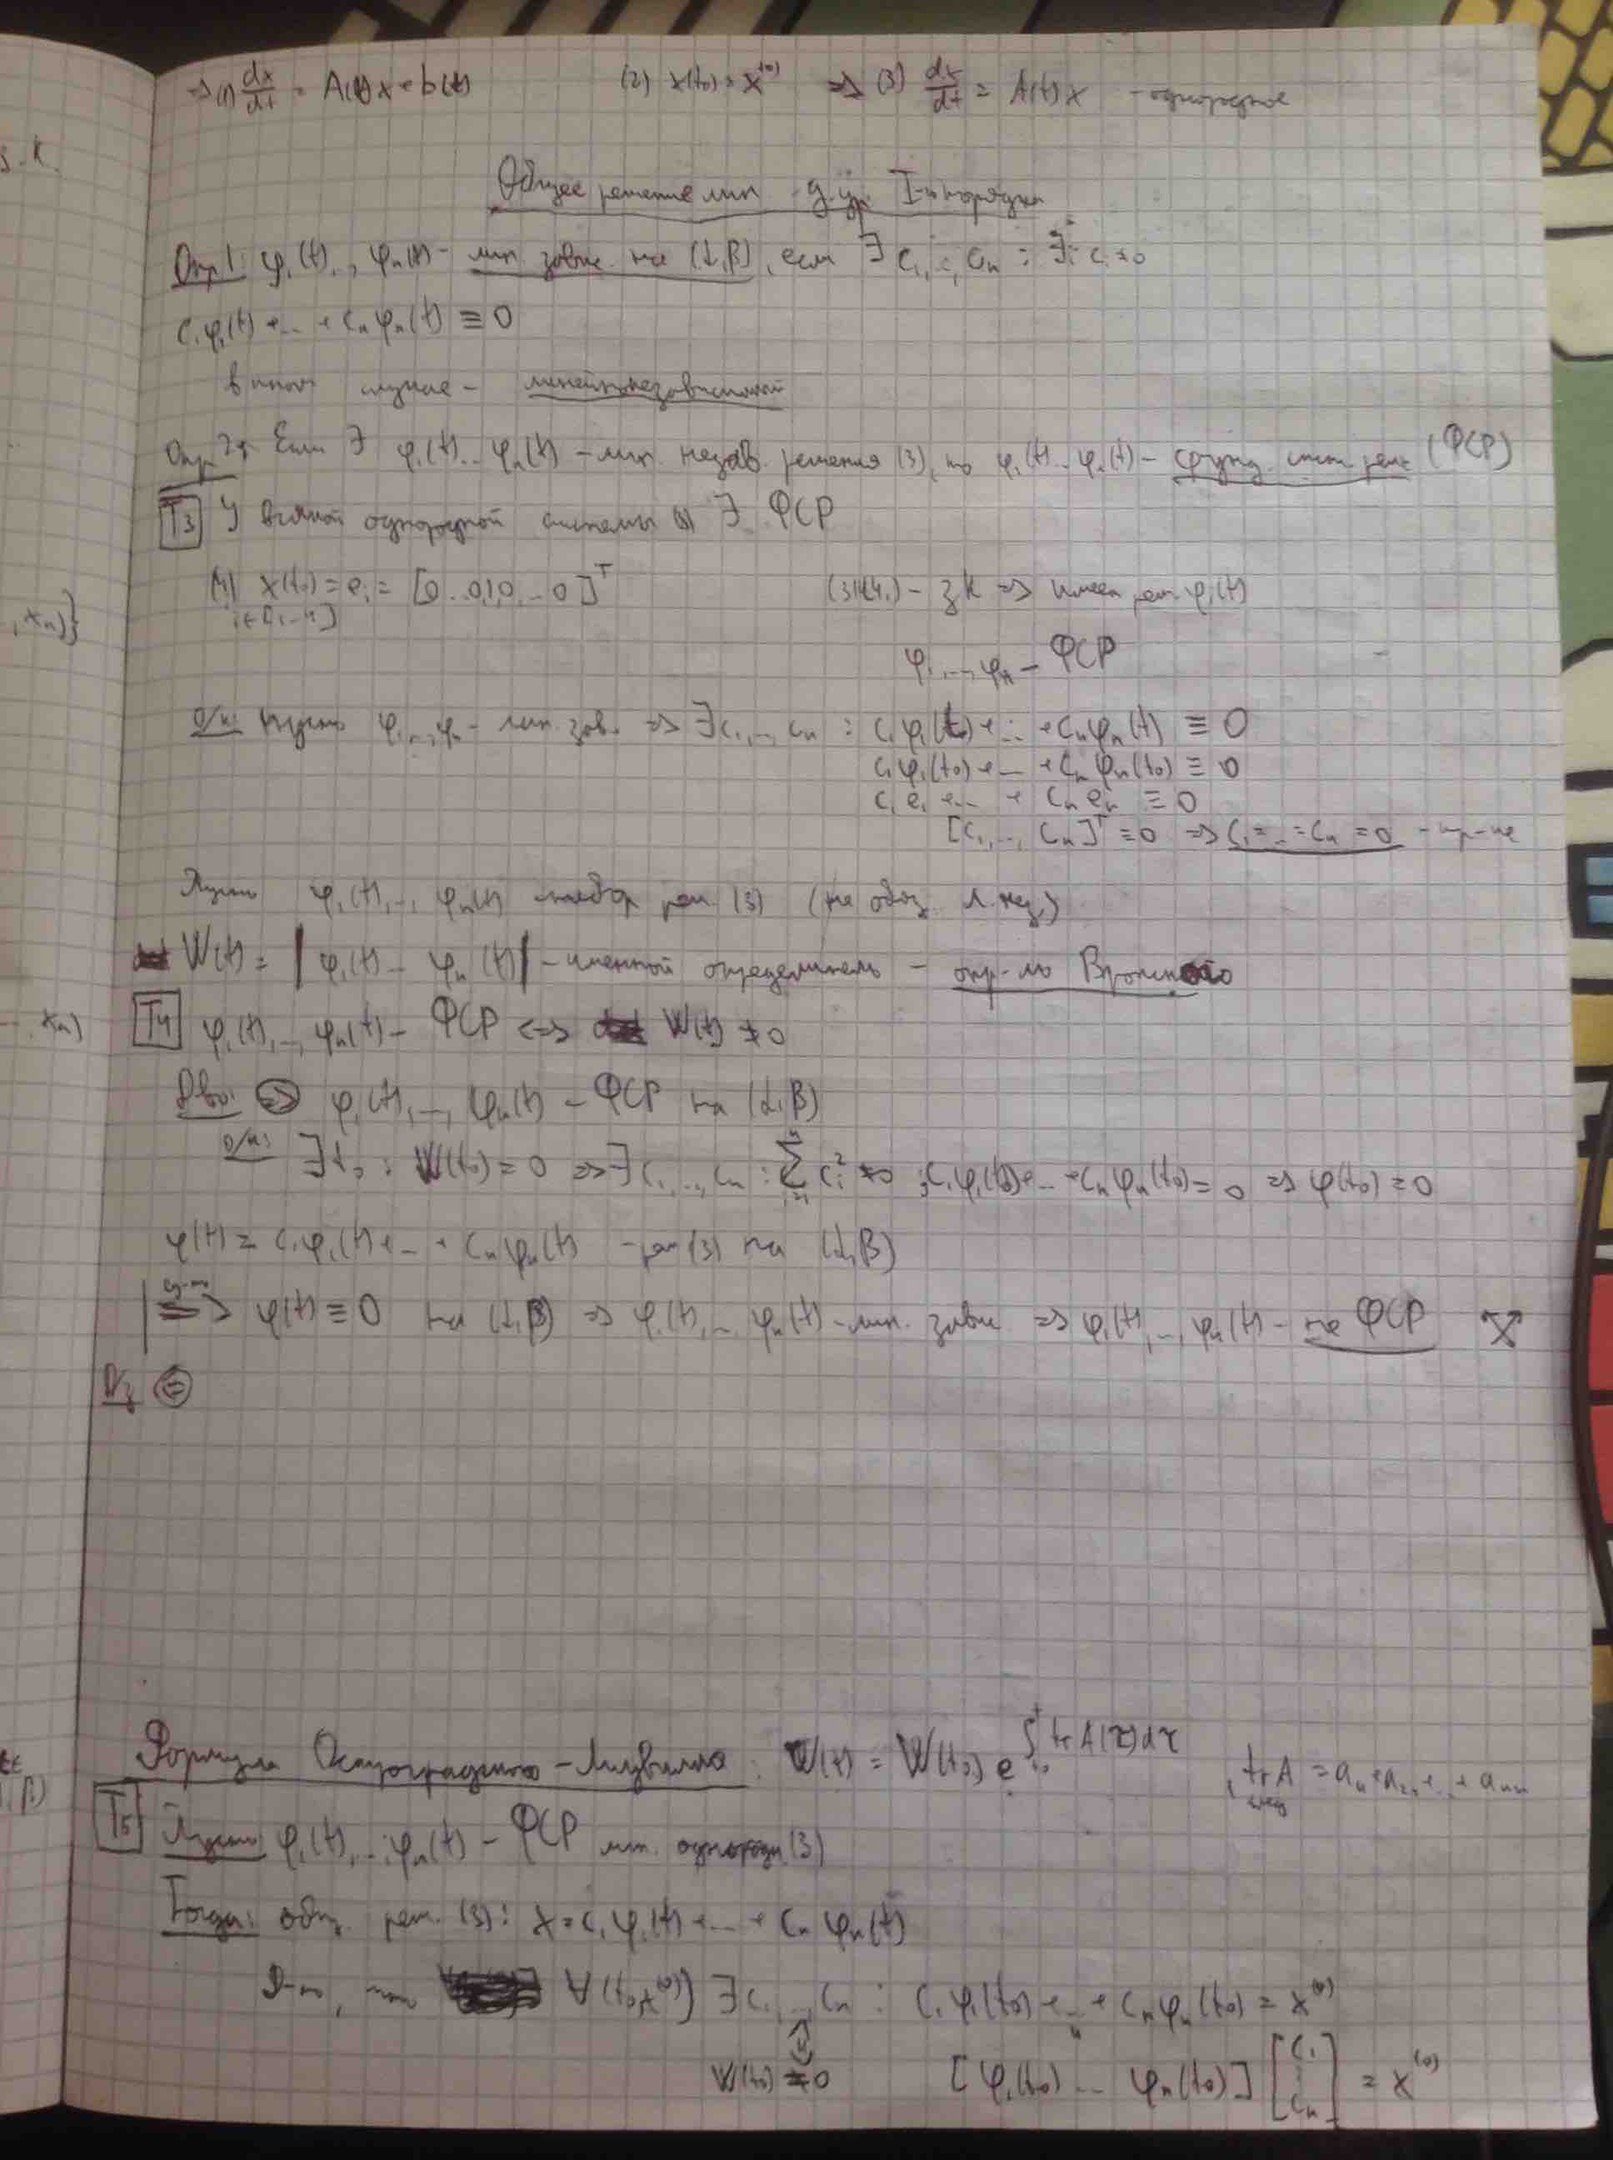 => (1) dx/dt = A(t)x + b(t) (2) x(t₀) = x⁽⁰⁾ => (3) dx/dt = A(t)x - однородное
Общее решение лин. д.ур. I-го порядка
Опр 1: φ₁(t),.., φₙ(t) - лин. завис. на (α,β), если ∃ c₁,..,cₙ : ∃i cᵢ≠0
c₁φ₁(t)+...+cₙφₙ(t) ≡ 0
в ином случае - линейнонезависимой
Опр 2: Если ∃ φ₁(t)...φₙ(t) - лин. незав. решения (3), то φ₁(t)...φₙ(t) - фунд. сист. реш (ФСР)
T3 У всякой однородной системы (3) ∃ ФСР
(4) x(t₀) = eᵢ = [0...0,1,0,...0]ᵀ (3)(4ᵢ) - зК => имеем реш. φᵢ(t)
i∈[1..n]
φ₁,...,φₙ - ФСР
О/п: Пусть φ₁,..,φₙ - лин. зав. => ∃c₁,..,cₙ : c₁φ₁(t)+...+cₙφₙ(t) ≡ 0
c₁φ₁(t₀)+...+cₙφₙ(t₀) ≡ 0
c₁e₁+...+cₙeₙ ≡ 0
[c₁,...,cₙ]ᵀ = 0 => c₁=...=cₙ=0 - пр-ие
Пусть φ₁(t),..,φₙ(t) - набор реш. (3) (не обяз. л.нез.)
W(t) = |φ₁(t)... φₙ(t)| - именной определитель - опр-ль Вронского
T4 φ₁(t),..,φₙ(t) - ФСР <=> W(t) ≠ 0
Дво: => φ₁(t),...,φₙ(t) - ФСР на (α,β)
О/п: ∃t₀ : W(t₀) = 0 => ∃c₁,..,cₙ : ∑ᵢ₌₁ⁿ cᵢ² ≠ 0 ; c₁φ₁(t₀)+...+cₙφₙ(t₀) = 0 => φ(t₀) = 0
φ(t) = c₁φ₁(t)+...+cₙφₙ(t) - реш (3) на (α,β)
=> φ(t) ≡ 0 на (α,β) => φ₁(t),..,φₙ(t) - лин. завис => φ₁(t),..,φₙ(t) - не ФСР
Дз <=
Формула Остроградского-Лиувилля: W(t) = W(t₀) e^∫ₜ₀ᵗ trA(τ)dτ , trA = a₁₁+a₂₂+..+aₙₙ
след
T5 Пусть φ₁(t),..,φₙ(t) - ФСР лин. однородн (3)
Тогда: общ. реш. (3): x = c₁φ₁(t)+...+cₙφₙ(t)
Д-м, что ∀(t₀,x⁽⁰⁾) ∃c₁,..,cₙ : c₁φ₁(t₀)+...+cₙφₙ(t₀) = x⁽⁰⁾
W(t₀) ≠ 0 [φ₁(t₀) ... φₙ(t₀)] [c₁ ⋮ cₙ] = x⁽⁰⁾